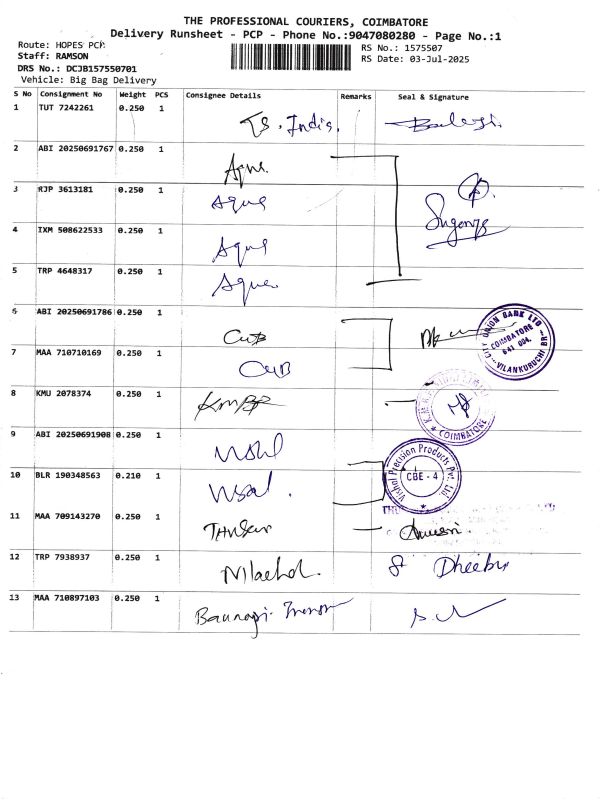 THE PROFESSIONAL COURIERS, COIMBATORE
Delivery Runsheet - PCP - Phone No.:9047080280 - Page No.:1
Route: HOPES PCP
Staff: RAMSON
DRS No.: DCJB157550701
Vehicle: Big Bag Delivery
RS No.: 1575507
RS Date: 03-Jul-2025
S No Consignment No Weight PCS Consignee Details Remarks Seal & Signature
1 TUT 7242261 0.250 1 TS. India.
2 ABI 20250691767 0.250 1
3 RJP 3613181 0.250 1 Aqua
4 IXM 508622533 0.250 1 Aqua
5 TRP 4648317 0.250 1 Aqua
6 ABI 20250691786 0.250 1 CUB
CITY UNION BANK LTD COIMBATORE 641 004. VILANKURUCHI BR
7 MAA 710710169 0.250 1 CUB
8 KMU 2078374 0.250 1 KMBP
COIMBATORE
9 ABI 20250691908 0.250 1
10 BLR 190348563 0.210 1
Vishal Precision Products Pvt. Ltd. CBE - 4
11 MAA 709143270 0.250 1
12 TRP 7938937 0.250 1
13 MAA 710897103 0.250 1